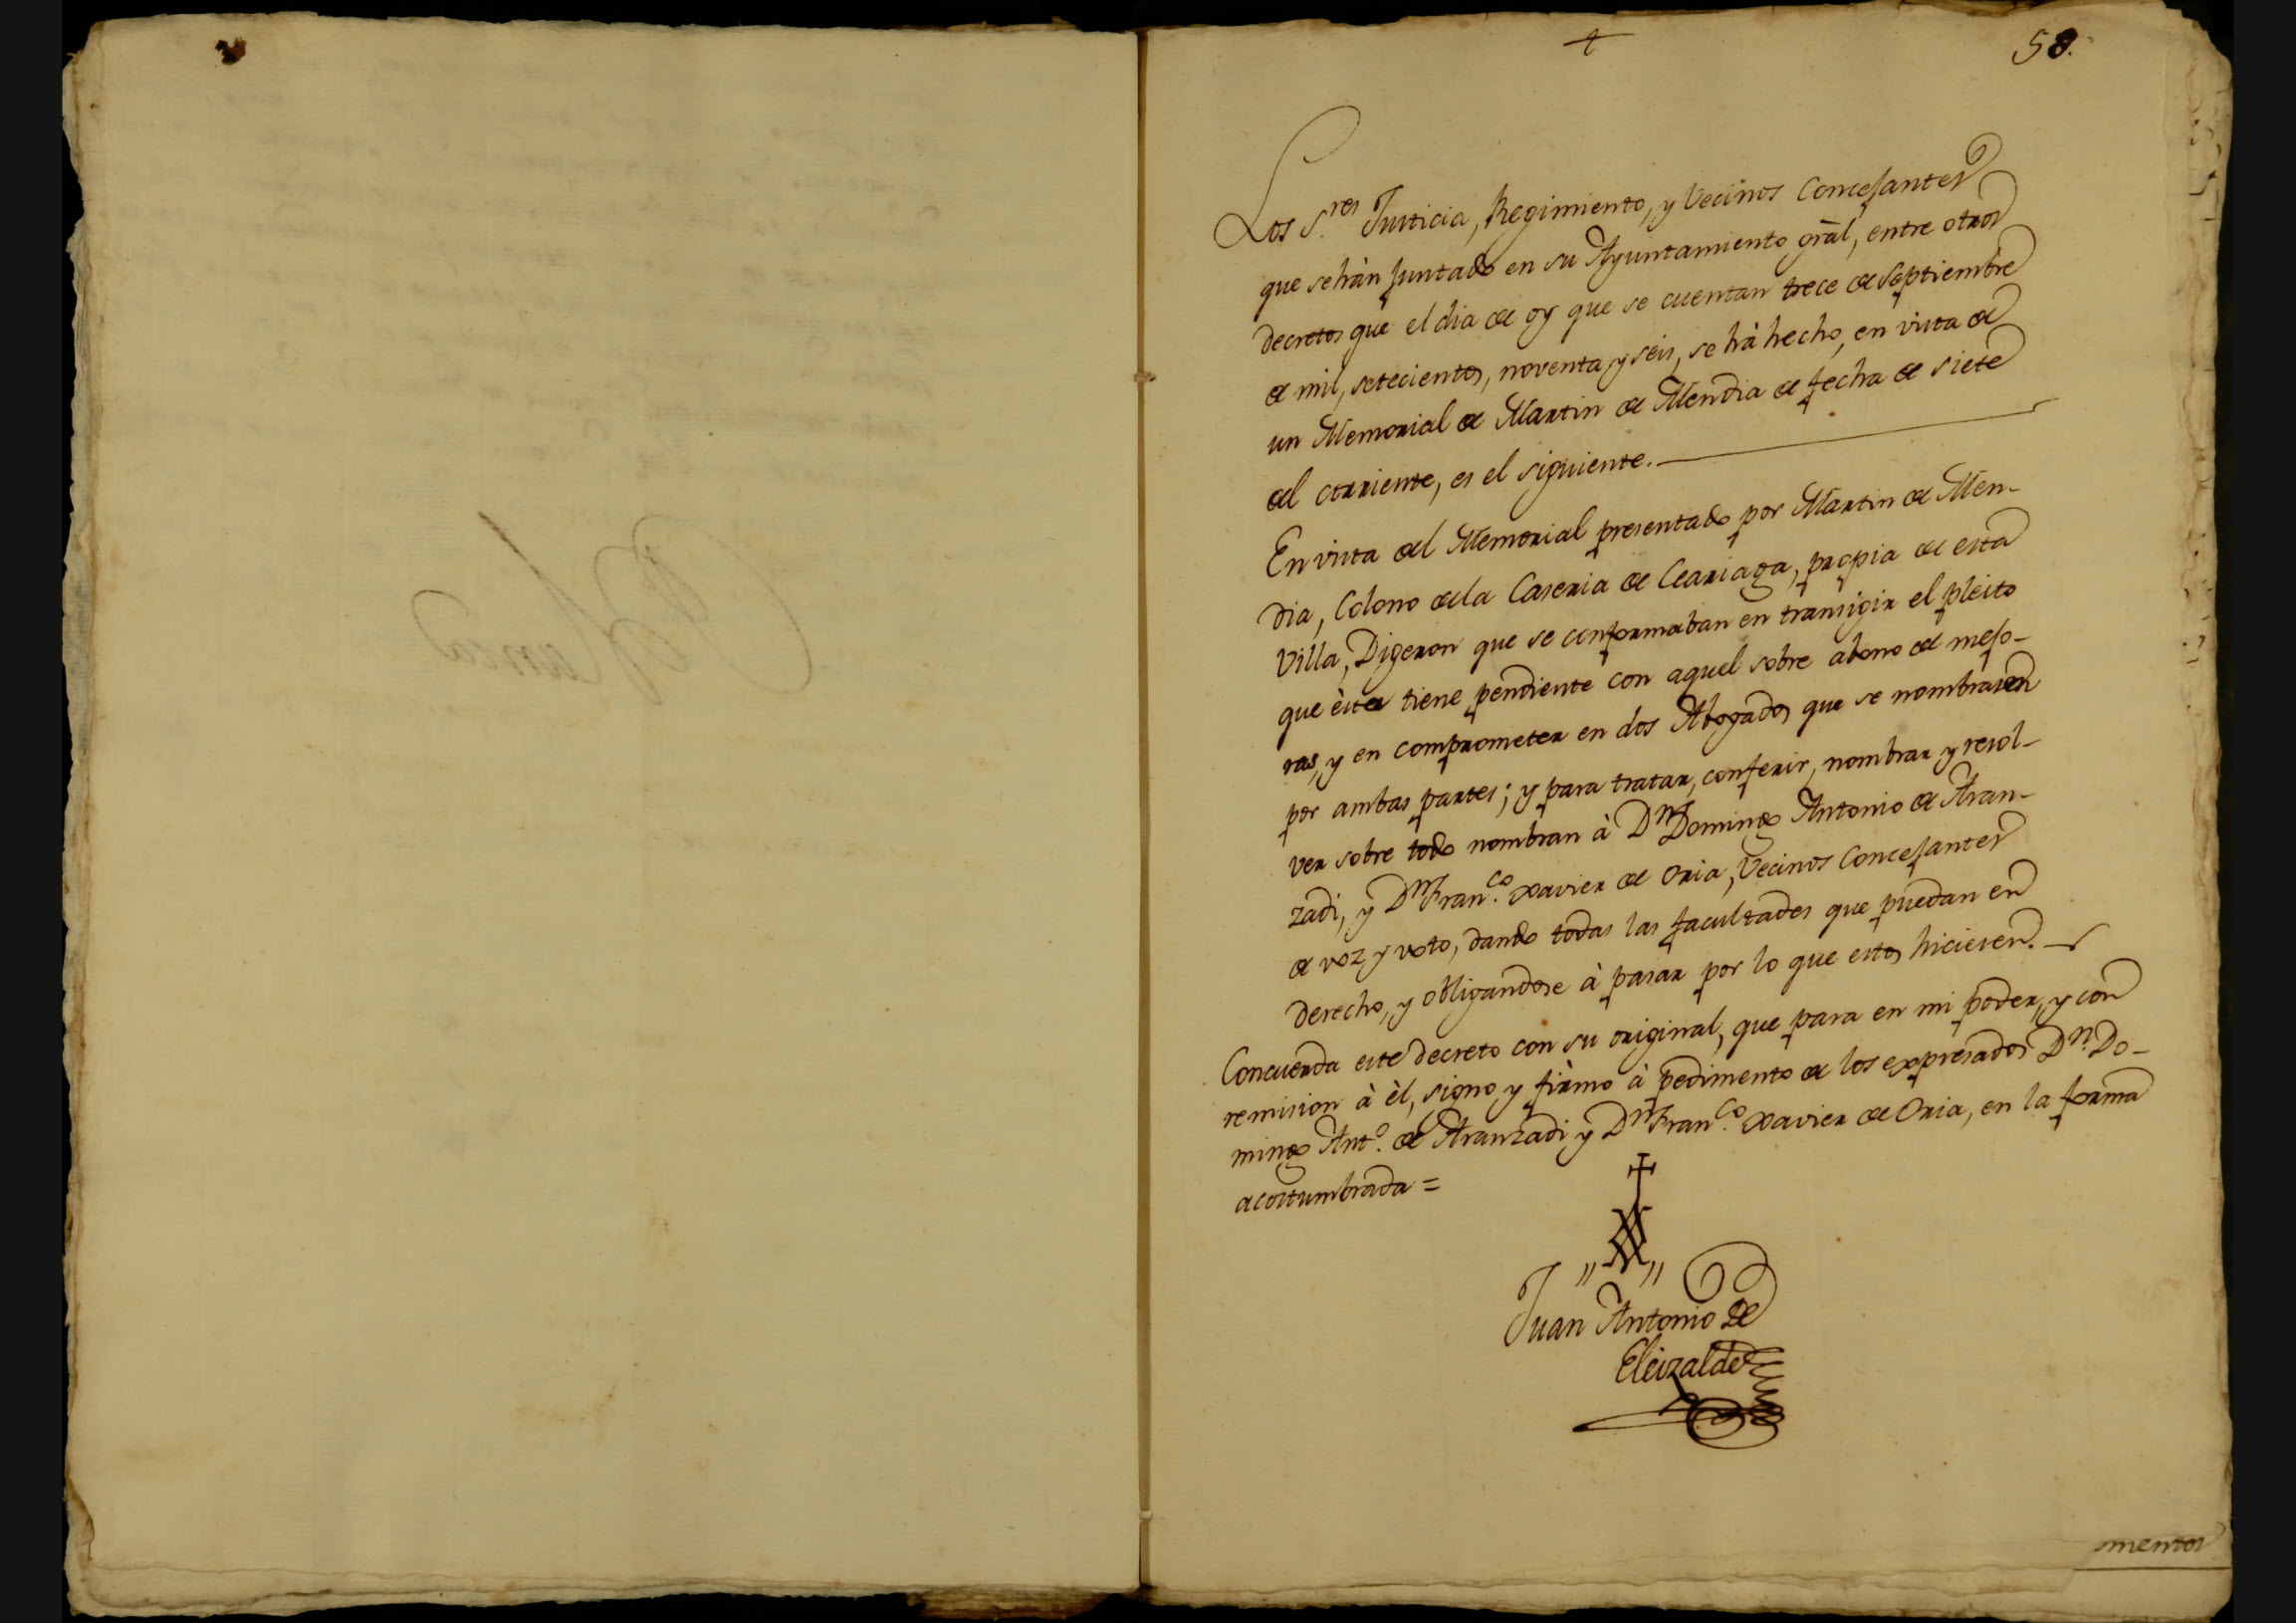 58.
Los S.res Justicia, Regimiento, y Vecinos Concejantes
que se hàn juntado en su Ayuntamiento gràl, entre otros
decretos que el dia de oy que se cuentan trece de Septiembre
de mil, setecientos, noventa, y seis, se hà hecho, en vista de
un Memorial de Martin de Mendia de fecha de siete
del corriente, es el siguiente.
En vista del Memorial presentado por Martin de Men-
dia, Colono de la Caseria de Cleariaga, propia de esta
Villa, Digeron que se conformaban en transigir el pleito
que èsta tiene pendiente con aquel sobre abono de mejo-
ras, y en comprometer en dos Abogados que se nombrasen
por ambas partes; y para tratar, conferir, nombrar y resol-
ver sobre todo nombran à Dn Domingo Antonio de Aran-
zadi, y Dn Fran.co Xavier de Oria, Vecinos Concejantes
de voz y voto, dando todas las facultades que puedan en
derecho, y obligandose à pasar por lo que estos hicieren.
Concuerda este decreto con su original, que para en mi poder, y con
remision à èl, signo y firmo à pedimento de los expresados Dn. Do-
mingo Ant.o de Aranzadi y Dn Fran.co Xavier de Oria, en la forma
acostumbrada =
Juan Antonio de
Eleizalde
mentos